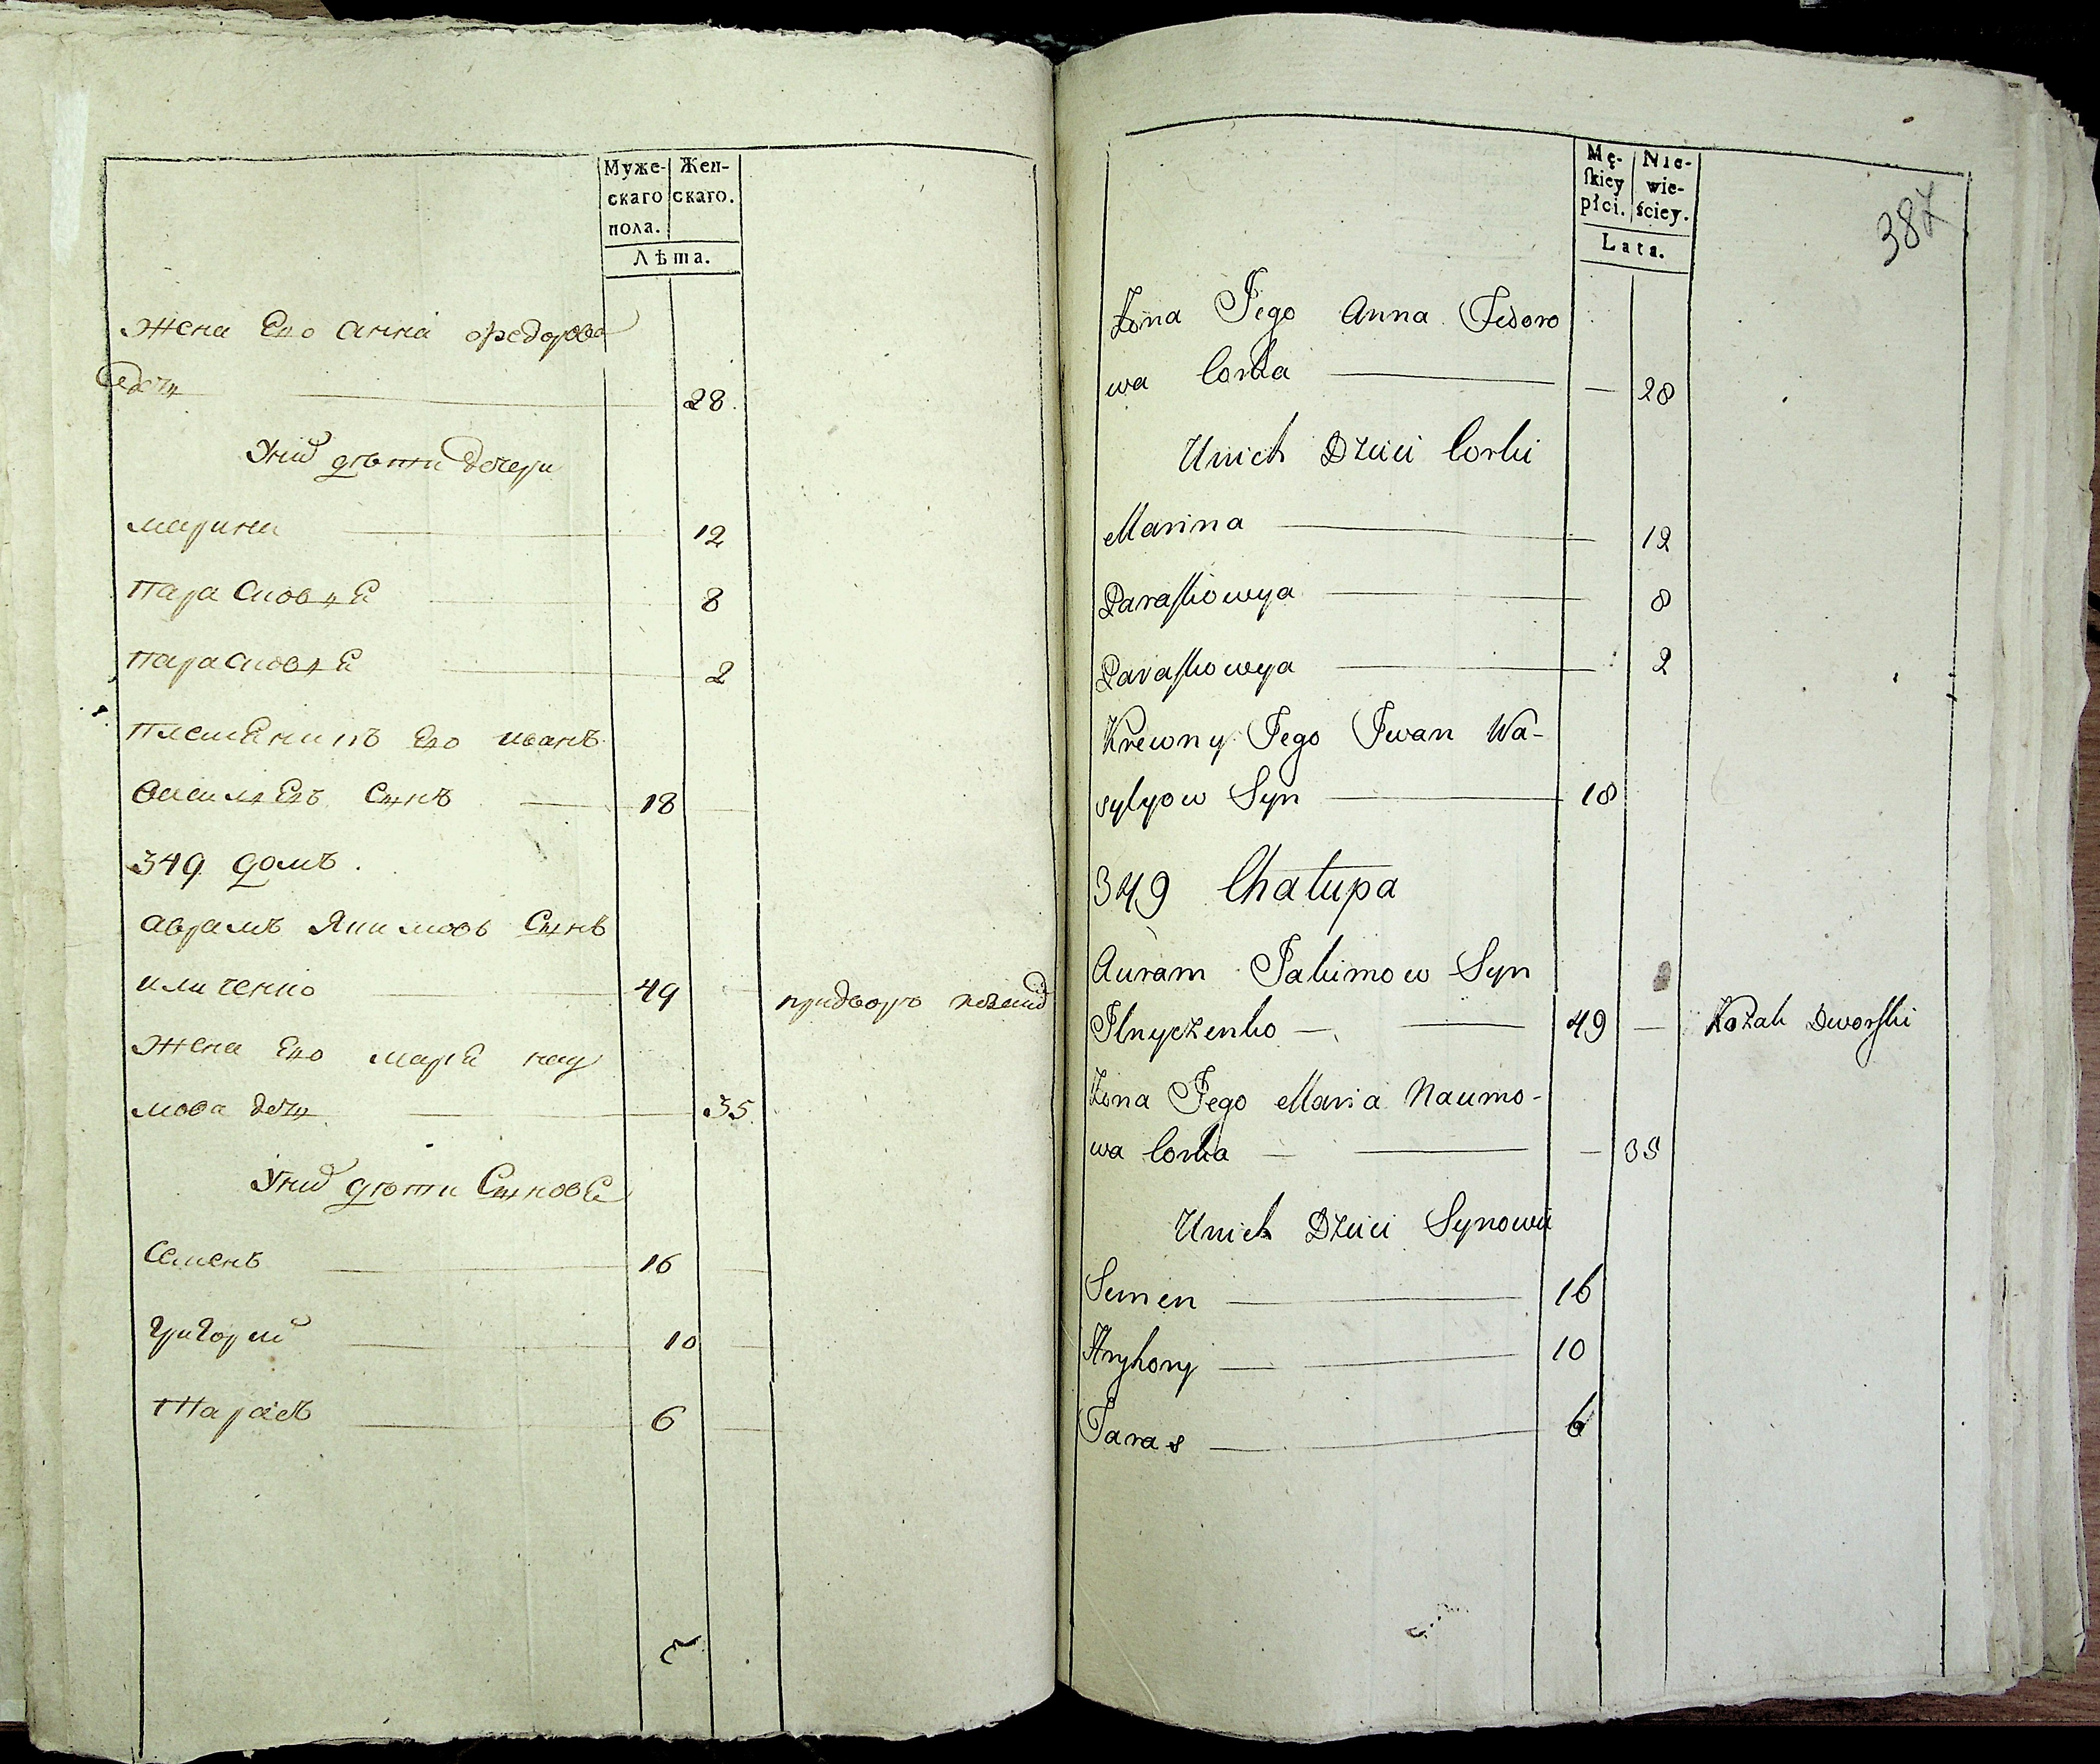 Муже-
скаго
пола.
Жен-
скаго.
Лѣта.
Жена Его Анна Федорова
дочь 28
Униⷯ дѣти дочери
Марина 12
Парасковья 8
Парасковья 2
Племеникъ Его иванъ
Васильевъ Сынъ 18
349 домъ.
Аврамъ Якимовъ Сынъ
иличенко 49
Жена Его Марья нау
мова дочь 35
Униⷯ дѣти Сыновья
Семенъ 16
Григорий 10
Тарасъ 6
Mę-
ſkiey
płci.
Nie-
wie-
ściey.
Lata.
387
Żona Jego Anna Fedoro
wa Corka 28
Unich Dzieci Corki
Marina 12
Paraſkowya 8
Paraſkowya 2
Krewny Jego Jwan Wa-
sylyow Syn 18
349 Chałupa
Auram Jakimow Syn
Jlnyczenko 49 Kozak Dworſki
Żona Jego Maria Naumo-
wa Corka 35
Unich Dzieci Synowie
Semen 16
Hryhory 10
Taras 6